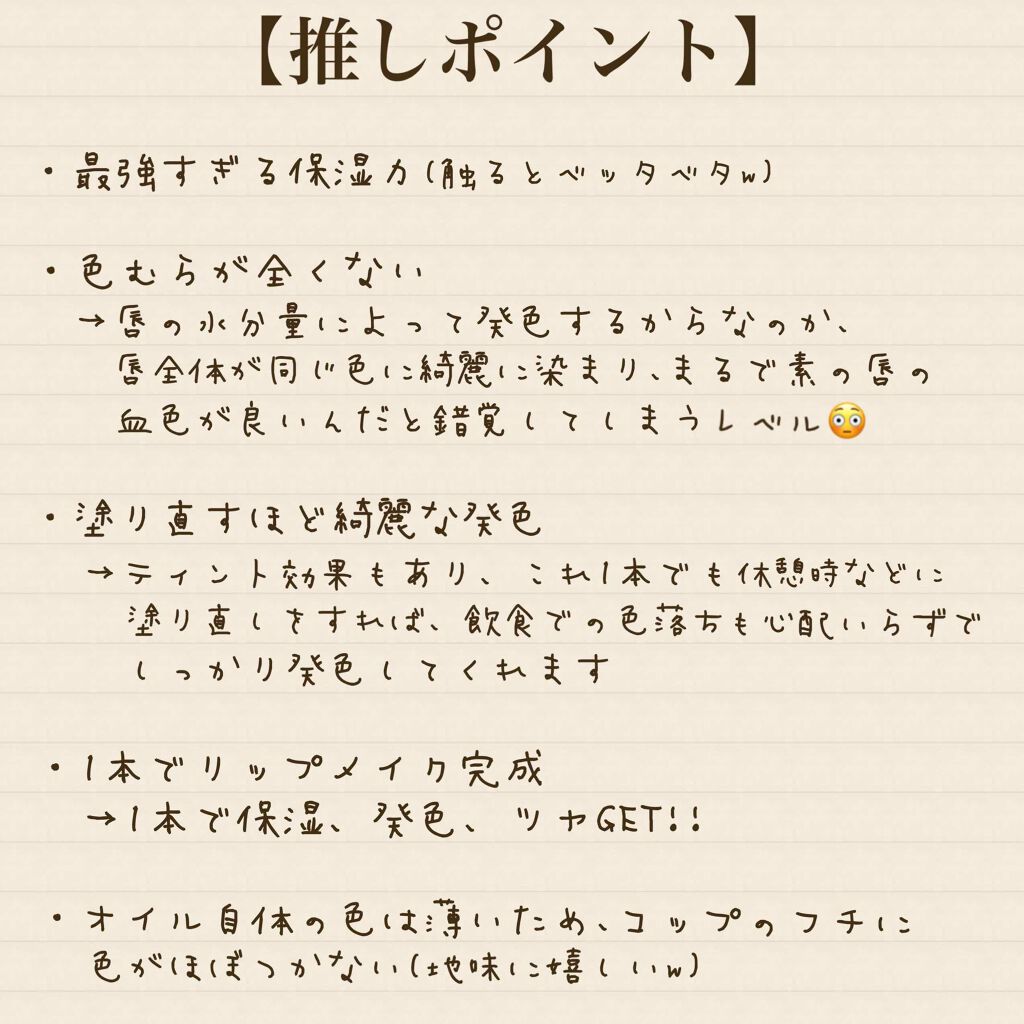 【推しポイント】
・最強すぎる保湿力(触るとベッタベタw)
・色むらが全くない
→唇の水分量によって発色するからなのか、
唇全体が同じ色に綺麗に染まり、まるで素の唇の
血色が良いんだと錯覚してしまうレベル😳
・塗り直すほど綺麗な発色
→ティント効果もあり、これ1本でも休憩時などに
塗り直しをすれば、飲食での色落ちも心配いらずで
しっかり発色してくれます
・1本でリップメイク完成
→1本で保湿、発色、ツヤGET!!
・オイル自体の色は薄いため、コップのフチに
色がほぼつかない(地味に嬉しいw)